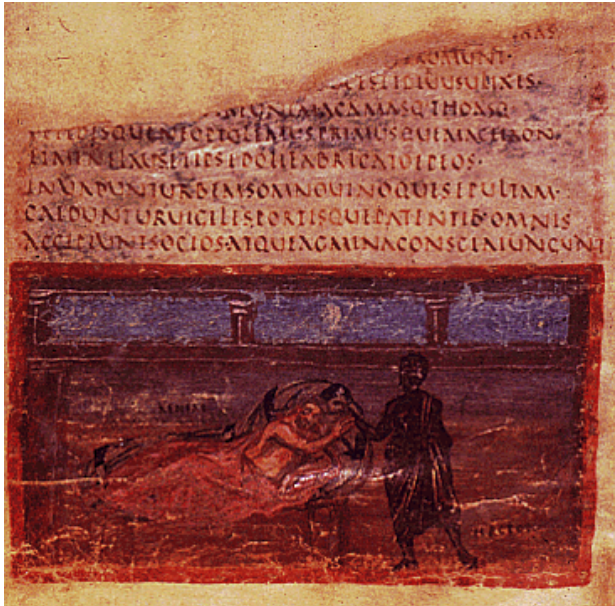 ACAMASQ THOASQ
NEOPTOLEMUS PRIMUSQUE MACHAON·
ET MENELAUS ET IPSE DOLI FABRICATOR EPEOS·
INUADUNT URBEM SOMNO UINOQUE SEPULTAM·
CAEDUNTUR UIGILES PORTISQUE PATENTIB· OMNIS
ACCIPIUNT SOCIOS· ATQUE AGMINA CONSCIA IUNGUNT
AENEAS
HECTOR